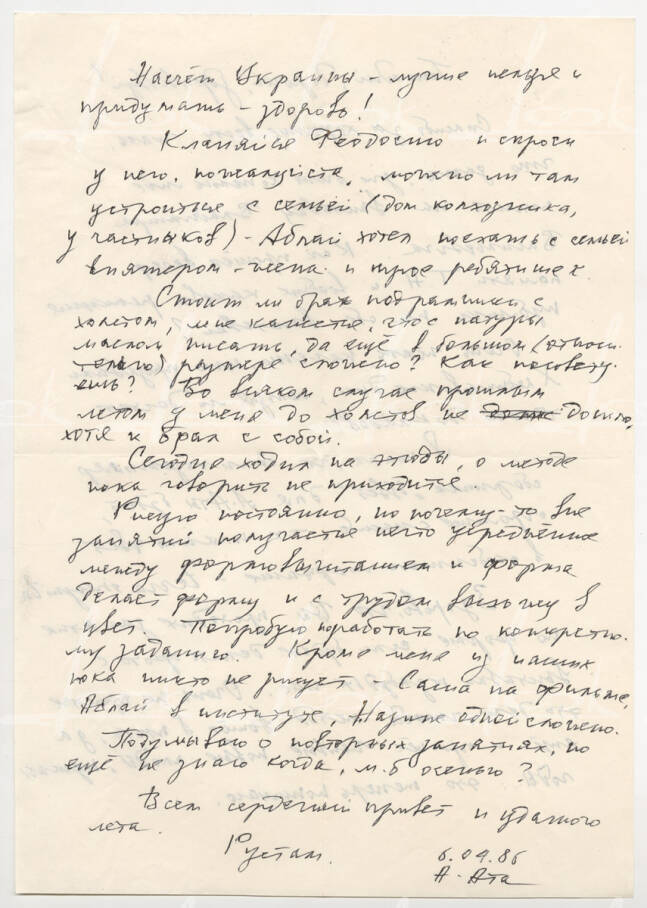 Насчёт Украины – лучше нельзя и
придумать – здорово!
Кланяйся Феодосию и спроси
у него, пожалуйста, можно ли там
устроиться с семьёй (дом колхозника,
у частников) – Аблай хотел поехать с семьёй
впятером – жена и трое ребятишек.
Стоит ли брать подрамники с
холстом, мне кажется, что с натуры
маслом писать, да ещё в большом (относи-
тельно) размере сложно? Как посовету-
ешь? Во всяком случае прошлым
летом у меня до холстов не дошло,
хотя и брал с собой.
Сегодня ходил на этюды, о методе
пока говорить не приходится.
Рисую постоянно, но почему-то вне
занятий получается нечто усреднённое
между формовычитанием и форма
делает форму и с трудом выхожу в
цвет. Попробую поработать по конкретно-
му заданию. Кроме меня из наших
пока никто не рисует – Саша на фильме,
Аблай в институте, одной сложно.
Подумываю о повторных занятиях, но
ещё не знаю когда, м.б осенью?
Всем сердечный привет и удачного
лета.
Рустам. 6.04.86
А-Ата